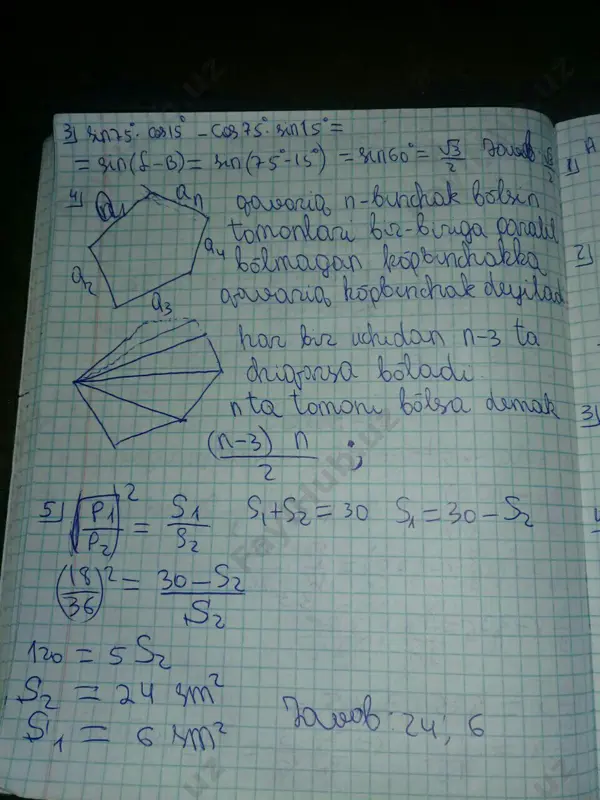 3) sin75° · cos15° - cos75° · sin15° =
= sin(α-B) = sin(75°-15°) = sin60° = √3/2 Javob: √3/2
4) a1 an a4 a3 a2
qavariq n-burchak bölsin
tomonlari bir-biriga paralil
bölmagan köpburchakka
qavariq köpburchak deyilad
har bir uchidan n-3 ta
diagonsa böladi.
n ta tomoni bölsa demak
(n-3) n / 2 ;
5) (P1/P2)² = S1/S2 S1+S2=30 S1=30-S2
(18/36)² = 30-S2 / S2
120 = 5 S2
S2 = 24 sm²
S1 = 6 sm²
Javob: 24; 6
A
1)
2)
3)